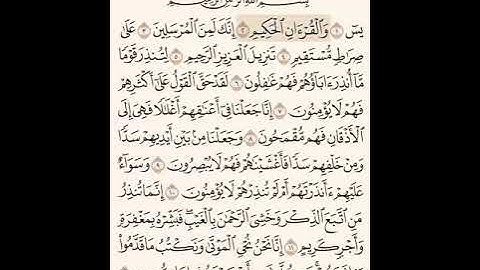 بِسْمِ اللَّهِ الرَّحْمَٰنِ الرَّحِيمِ
يسٓ ١ وَٱلْقُرْءَانِ ٱلْحَكِيمِ ٢ إِنَّكَ لَمِنَ ٱلْمُرْسَلِينَ ٣ عَلَىٰ
صِرَٰطٍ مُّسْتَقِيمٍ ٤ تَنزِيلَ ٱلْعَزِيزِ ٱلرَّحِيمِ ٥ لِتُنذِرَ قَوْمًا
مَّآ أُنذِرَ ءَابَآؤُهُمْ فَهُمْ غَٰفِلُونَ ٦ لَقَدْ حَقَّ ٱلْقَوْلُ عَلَىٰٓ أَكْثَرِهِمْ
فَهُمْ لَا يُؤْمِنُونَ ٧ إِنَّا جَعَلْنَا فِىٓ أَعْنَٰقِهِمْ أَغْلَٰلًا فَهِىَ إِلَى
ٱلْأَذْقَانِ فَهُم مُّقْمَحُونَ ٨ وَجَعَلْنَا مِنۢ بَيْنِ أَيْدِيهِمْ سَدًّا
وَمِنْ خَلْفِهِمْ سَدًّا فَأَغْشَيْنَٰهُمْ فَهُمْ لَا يُبْصِرُونَ ٩ وَسَوَآءٌ
عَلَيْهِمْ ءَأَنذَرْتَهُمْ أَمْ لَمْ تُنذِرْهُمْ لَا يُؤْمِنُونَ ١٠ إِنَّمَا تُنذِرُ
مَنِ ٱتَّبَعَ ٱلذِّكْرَ وَخَشِىَ ٱلرَّحْمَٰنَ بِٱلْغَيْبِ ۖ فَبَشِّرْهُ بِمَغْفِرَةٍ
وَأَجْرٍ كَرِيمٍ ١١ إِنَّا نَحْنُ نُحْىِ ٱلْمَوْتَىٰ وَنَكْتُبُ مَا قَدَّمُوا۟